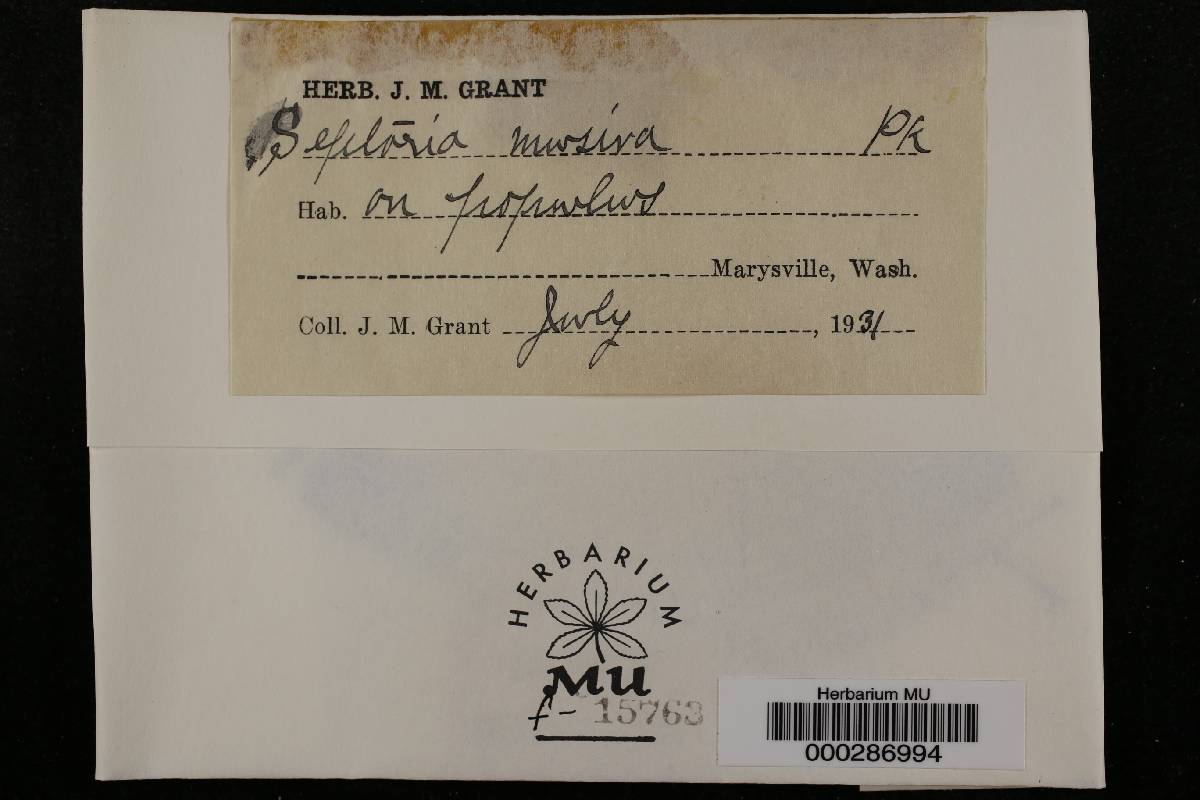 HERB. J. M. GRANT
Septoria musiva Pk
Hab. on populus
Marysville, Wash.
Coll. J. M. Grant July, 1931
HERBARIUM
MU
f- 15763
Herbarium MU
000286994